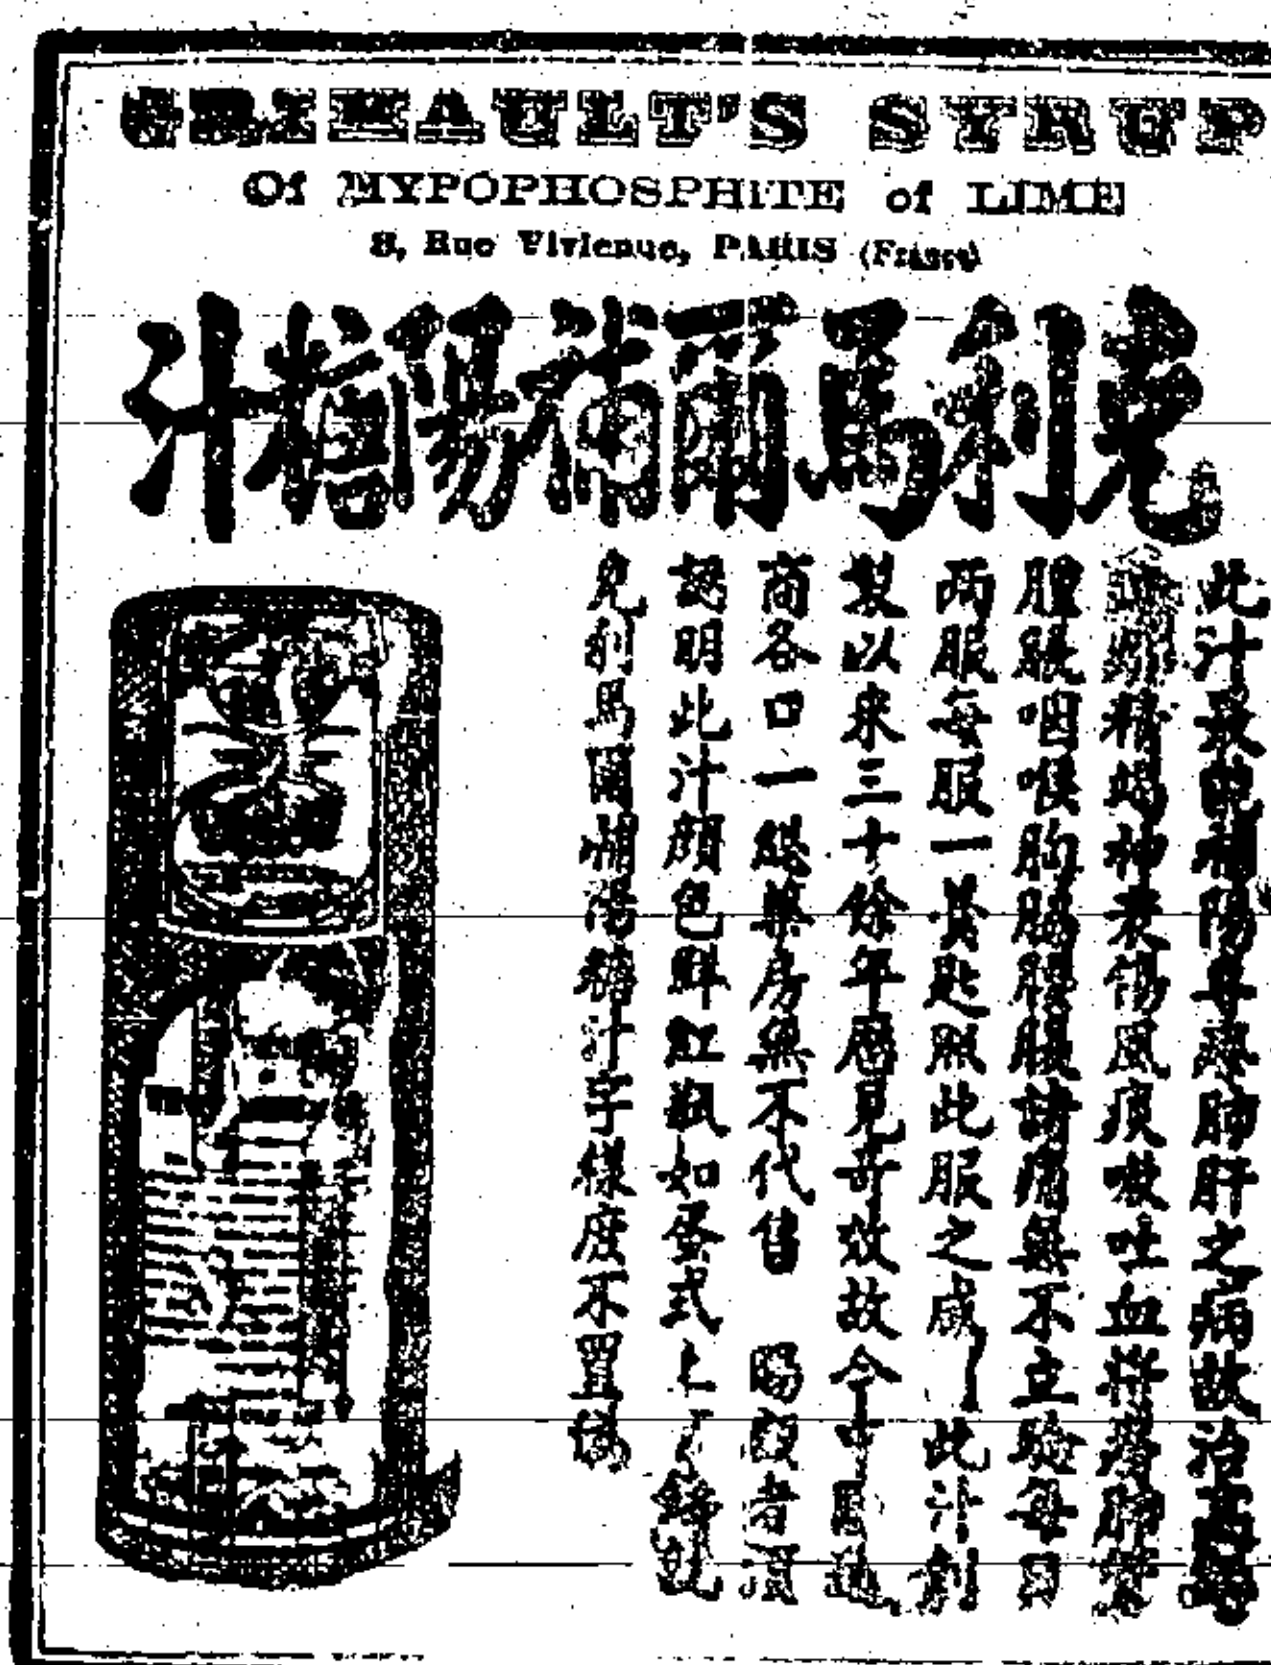 GRIMAULT'S SYRUP
Of HYPOPHOSPHITE of LIME
8, Rue Vivienne, PARIS (France)
克利馬爾補陽糖汁
此汁最能補陽專療肺肝之病故治
精竭神衰傷風痰嗽吐血
膛脹咽喉胸腸腰腹諸痛無不立驗每日
两服每服一羹匙照此服之 此汁創
製以來三十餘年歷見奇效故今中國通
商各口一經藥房無不代售 賜顧者須
認明此汁顏色鮮紅瓶如蛋式上
克利馬爾補陽糖汁字樣庶不置悞